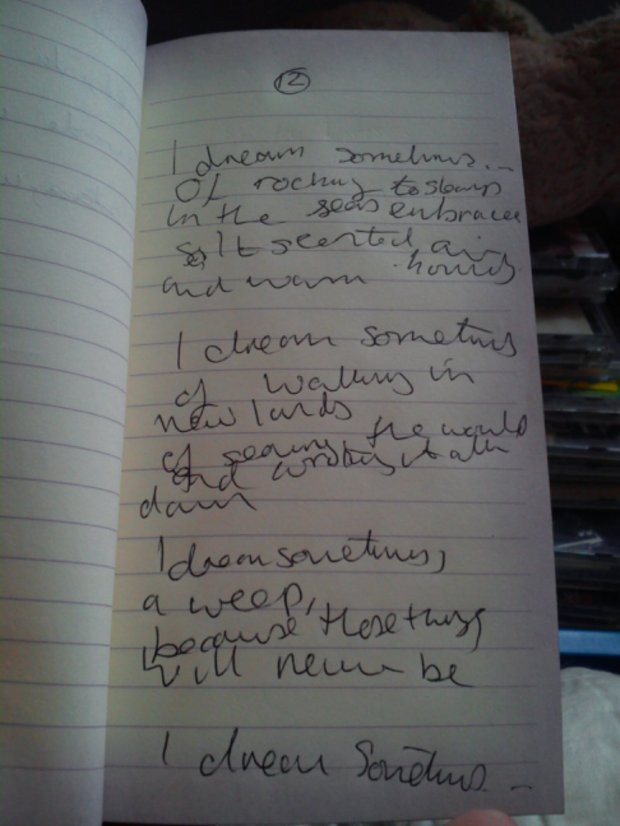 12
I dream sometimes...
Of rocking to sleep
In the seas embrace
salt scented air
and warm hands
I dream sometimes
of walking in
new lands
of seeing the world
and writing it all
down
I dream sometimes,
a weep,
because those things
will never be
I dream sometimes...